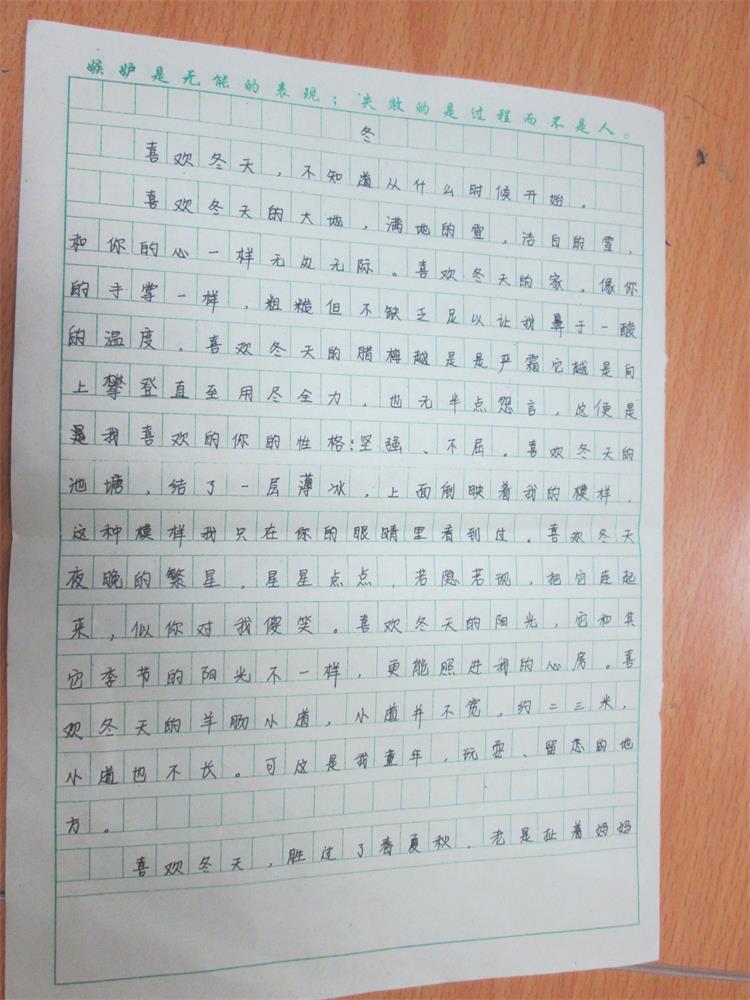 嫉妒是无能的表现；失败的是过程而不是人。
冬
喜欢冬天，不知道从什么时候开始。
喜欢冬天的大地，满地的雪，洁白的雪，
和你的心一样无边无际。喜欢冬天的家。像你
的手掌一样，粗糙但不缺乏足以让我鼻子一酸
的温度，喜欢冬天的腊梅越是是严霜它越是向
上攀登直至用尽全力，也无半点怨言，这便是
是我喜欢的你的性格：坚强、不屈。喜欢冬天的
池塘，结了一层薄冰，上面倒映着我的模样，
这种模样我只在你的眼睛里看到过。喜欢冬天
夜晚的繁星，星星点点，若隐若现，把它连起
来，似你对我傻笑。喜欢冬天的阳光，它和其
它季节的阳光不一样，更能照进我的心房。喜
欢冬天的羊肠小道，小道并不宽，约二三米，
小道也不长。可这是我童年，玩耍、留恋的地
方。
喜欢冬天，胜过了春夏秋，老是扯着妈妈